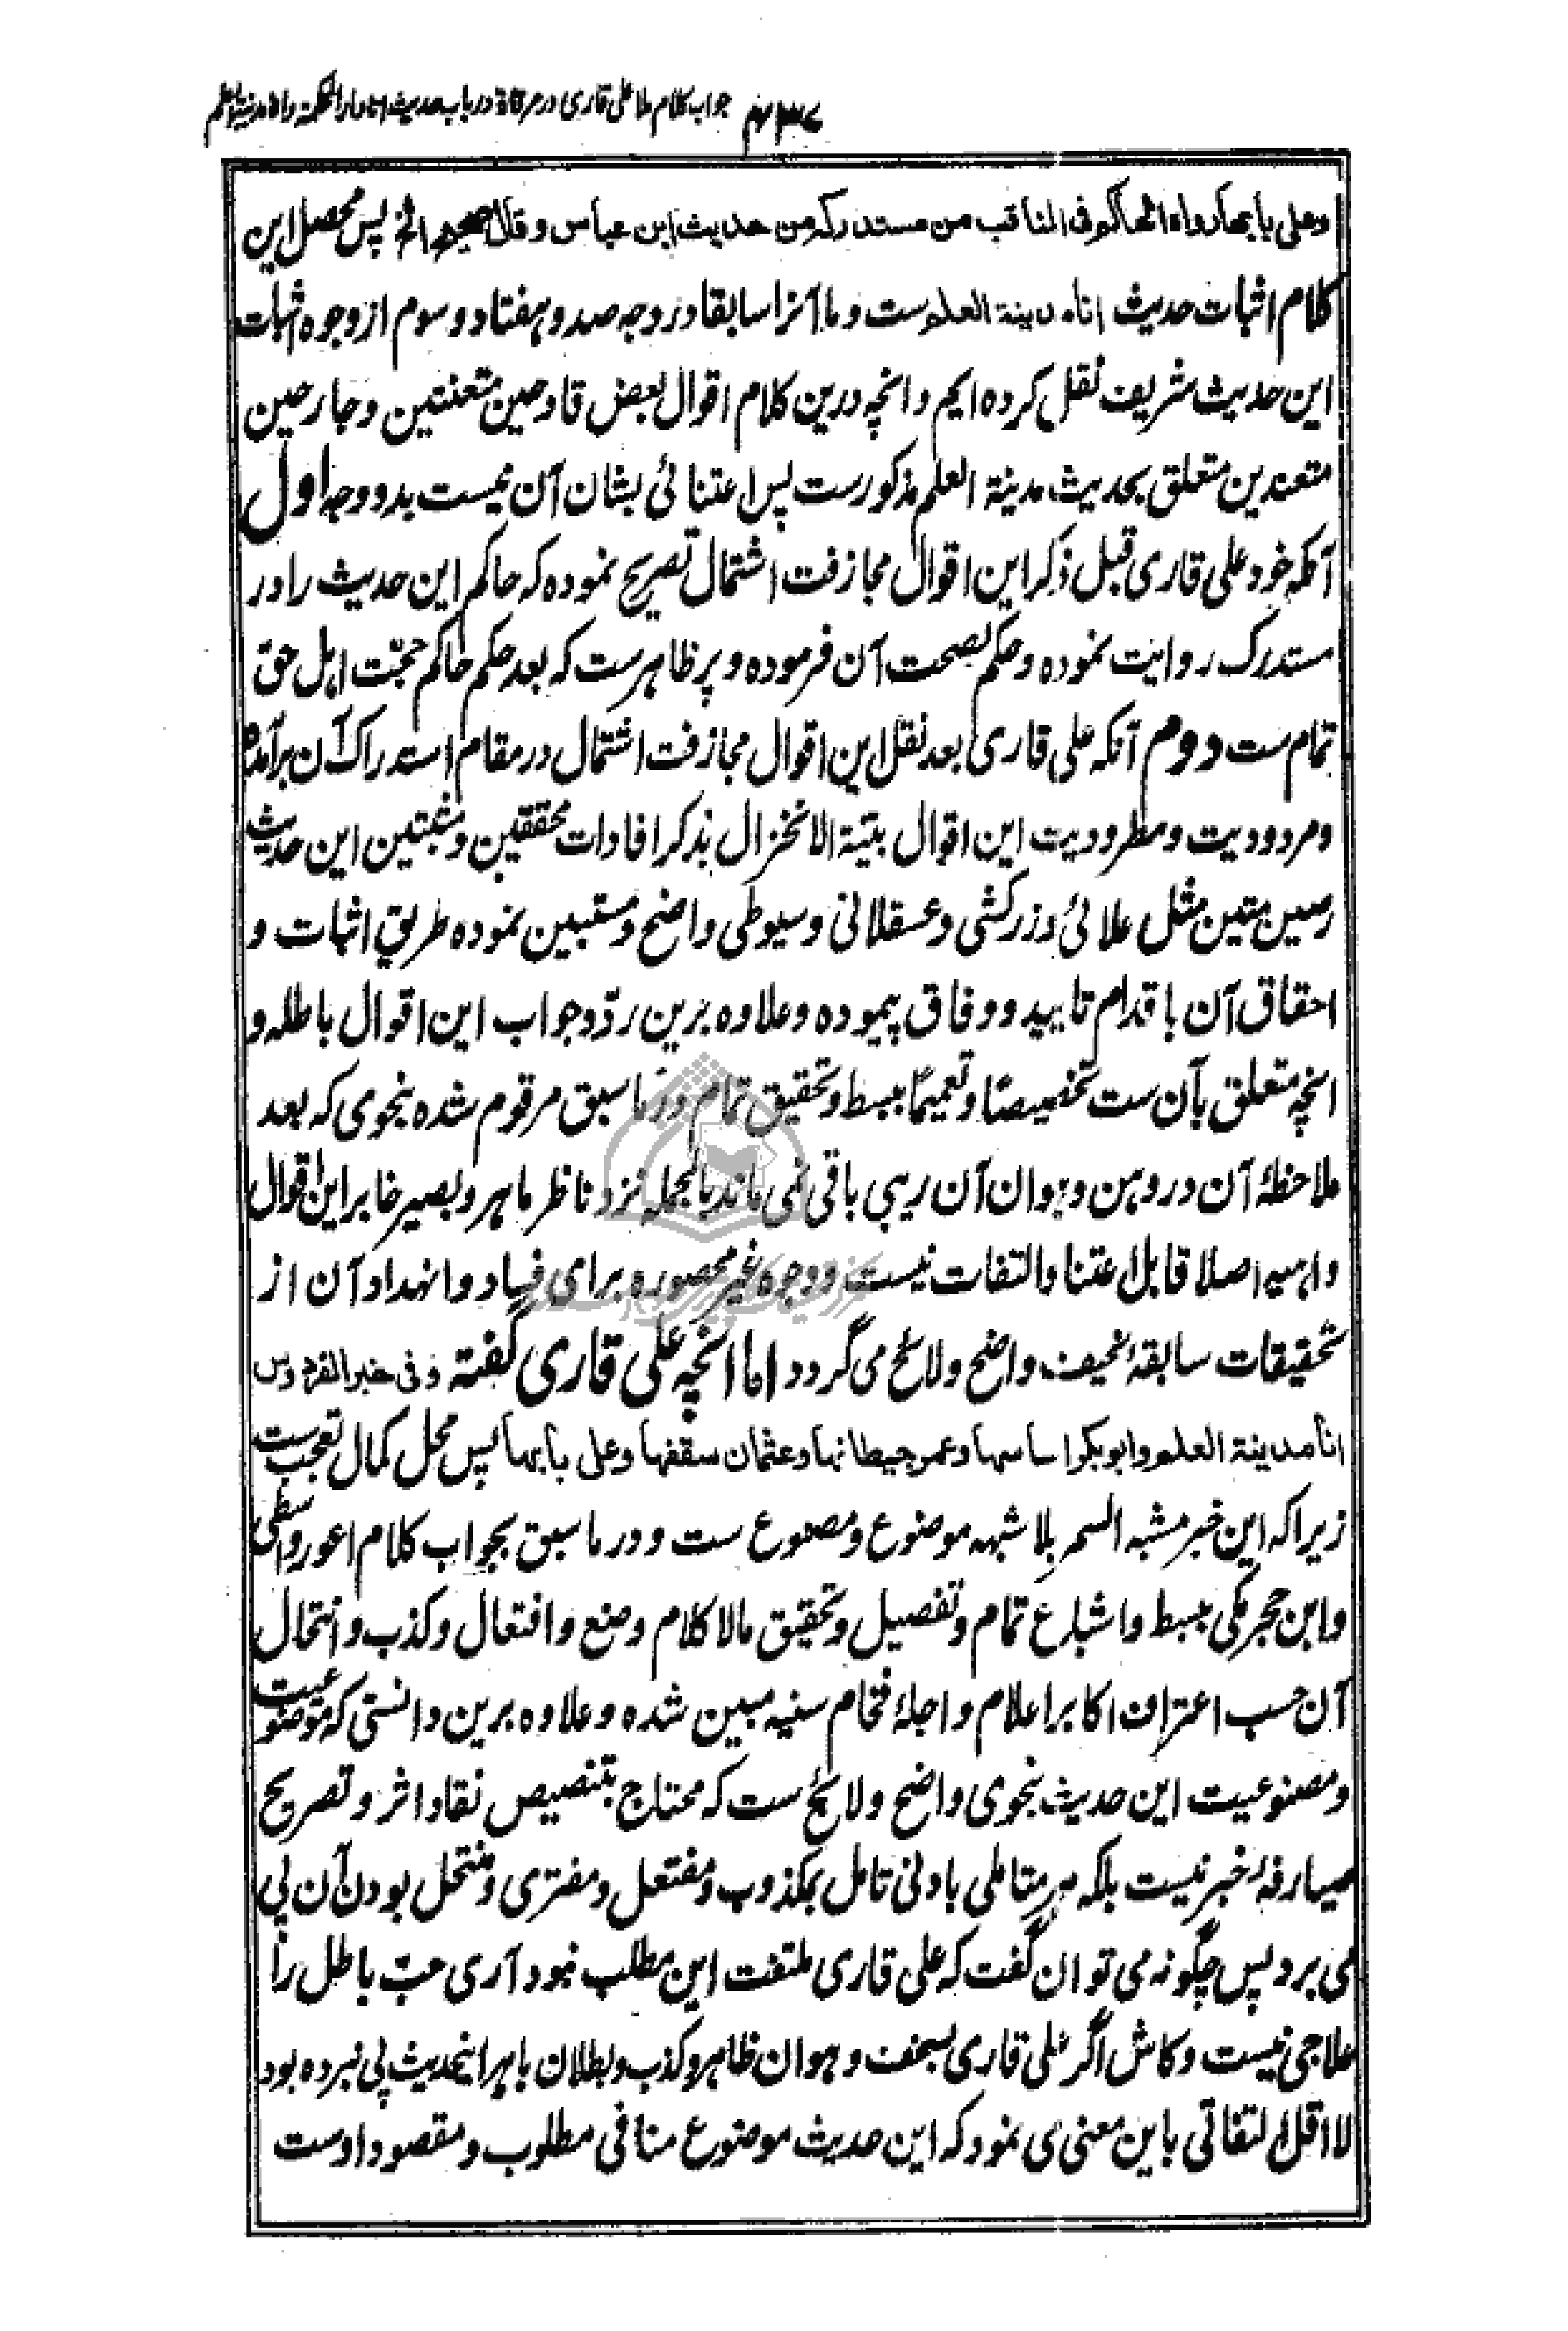 ۴۳۷ جواب کلام ملا علی قاری در مرقاة در باب حدیث انا دار الحکمة و انا مدینة العلم
وعلی بابها رواه الحاکم فی المناقب من مستدرکه من حدیث ابن عباس وقال صحیح الخ پس محصل این
کلام اثبات حدیث انا مدینة العلم ست و ما آنرا سابقا در وجه صد و هفتاد و سوم از وجوه اثبات
این حدیث شریف نقل کرده ایم و انچه درین کلام اقوال بعض قادحین متعنتین و جارحین
متعندین متعلق بحدیث مدینة العلم مذکورست پس اعتنائی بشان آن نیست بدو وجه اول
آنکه خود علی قاری قبل ذکر این اقوال مجازفت اشتمال تصریح نموده که حاکم این حدیث را در
مستدرک روایت نموده و حکم بصحت آن فرموده و پر ظاهرست که بعد حکم حاکم حجّت اہل حق
تمام ست دوم آنکه علی قاری بعد نقل این اقوال مجازفت اشتمال در مقام استدراک آن برآمده
و مردودیت و مطرودیت این اقوال بتیّة الانخزال بذکر افادات محققین و مثبتین این حدیث
رصین متین مثل علائی و زرکشی و عسقلانی و سیوطی واضح و مستبین نموده طریق اثبات و
احقاق آن باقدام تایید و وفاق پیموده و علاوه برین ردّ و جواب این اقوال باطله و
انچه متعلق بآن ست تخصیصًا و تعمیمًا ببسط و تحقیق تمام در ما سبق مرقوم شده بنحوی که بعد
ملاحظهٔ آن در وہن و ہوان آن ریبی باقی نمی ماند بالجمله نزد ناظر ماہر و بصیر خابر این اقوال
واہیه اصلا قابل اعتنا و التفات نیست و وجوه غیر محصوره برای فساد و انهداد آن از
تحقیقات سابقهٔ نحیف واضح و لائح می گردد اما انچه علی قاری گفته و فی خبر الفردوس
انا مدینة العلم وابوبکر اساسها وعمر حیطانها وعثمان سقفها وعلی بابها پس محل کمال تعجب ست
زیراکه این خبر مشبه السمر بلا شبهه موضوع و مصنوع ست و در ما سبق بجواب کلام اعور واسطی
و ابن حجر مکی ببسط و اشباع تمام و تفصیل و تحقیق مالا کلام وضع و افتعال و کذب و انتحال
آن حسب اعتراف اکابر اعلام و اجلهٔ فخام سنیه مبین شده و علاوه برین دانستی که موضوعیت
و مصنوعیت این حدیث بنحوی واضح و لائح ست که محتاج بتنصیص نقاد اثر و تصریح
صیارفهٔ خبر نیست بلکه ہر متاملی بادنی تامل بمکذوب و مفتعل و مفتری و منتحل بودن آن پی
می برد پس چگونه می توان گفت که علی قاری ملتفت این مطلب نبود آری حبّ باطل را
علاجی نیست و کاش اگر علی قاری بسخف و ہوان ظاہر و کذب و بطلان باہر اینحدیث پی نبرده بود
لا اقل التفاتی باین معنی می نمود که این حدیث موضوع منافی مطلوب و مقصود اوست